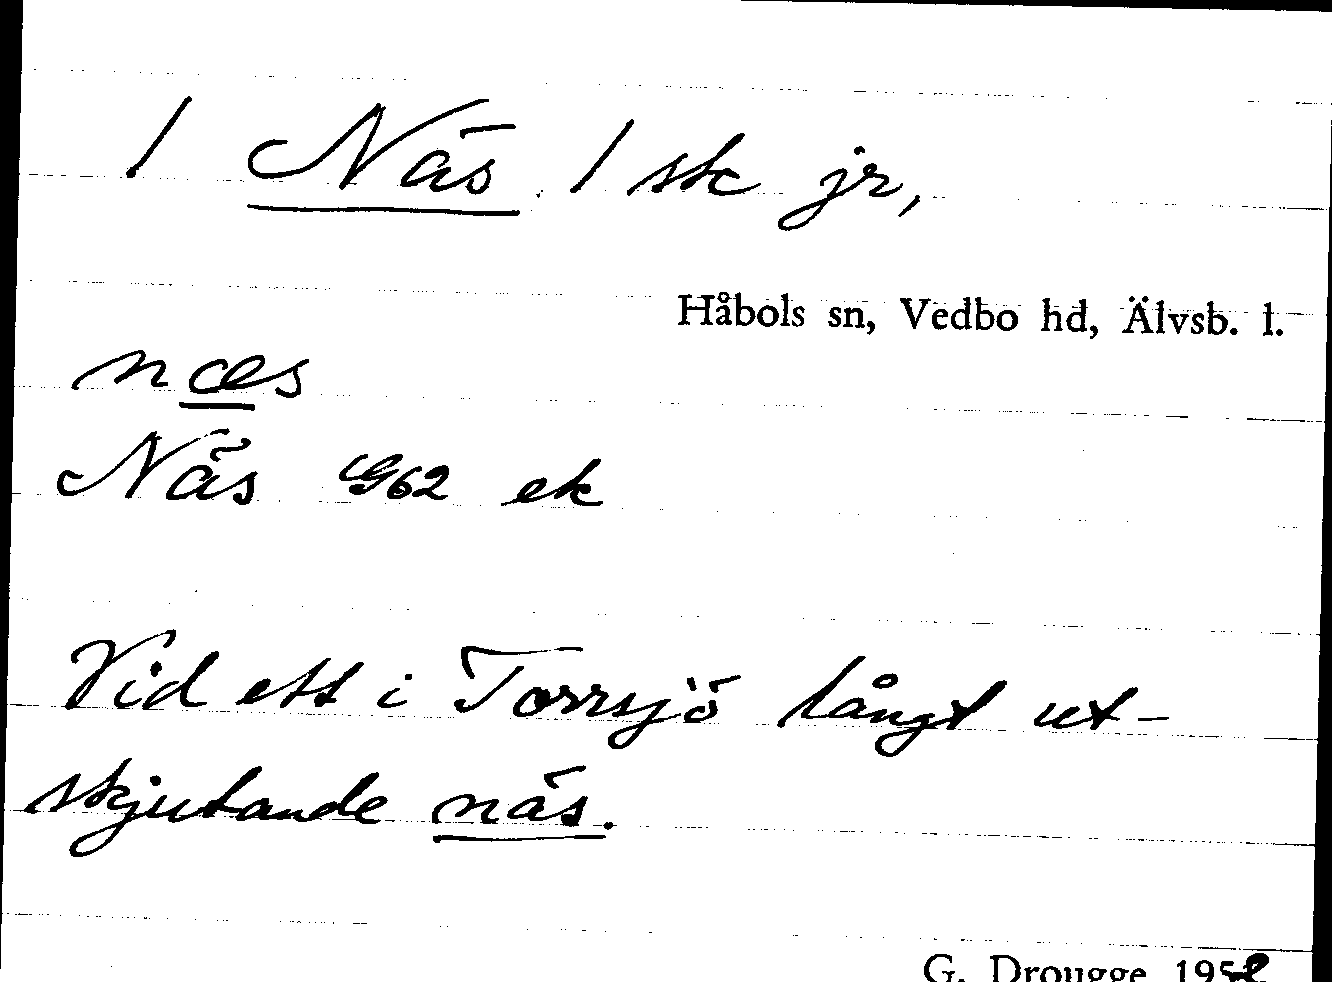 / Näs / sk jr,
Håbols sn, Vedbo hd, Älvsb. l.
næs
Näs G62 ek
Vid ett i Torrsjö långt ut-
skjutande näs.
G. Drougge 1952